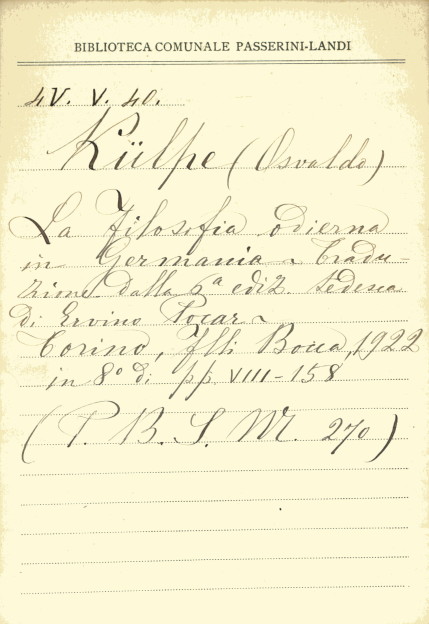 BIBLIOTECA COMUNALE PASSERINI-LANDI
4V. V. 40.
Külpe (Osvaldo)
La Filosofia odierna
in Germania - Tradu-
zione dalla 5ª ediz tedesca
di Ervino Pocar -
Torino, Flli Bocca, 1922
in 8° di pp VIII-158
(P. B. S. M. 270)